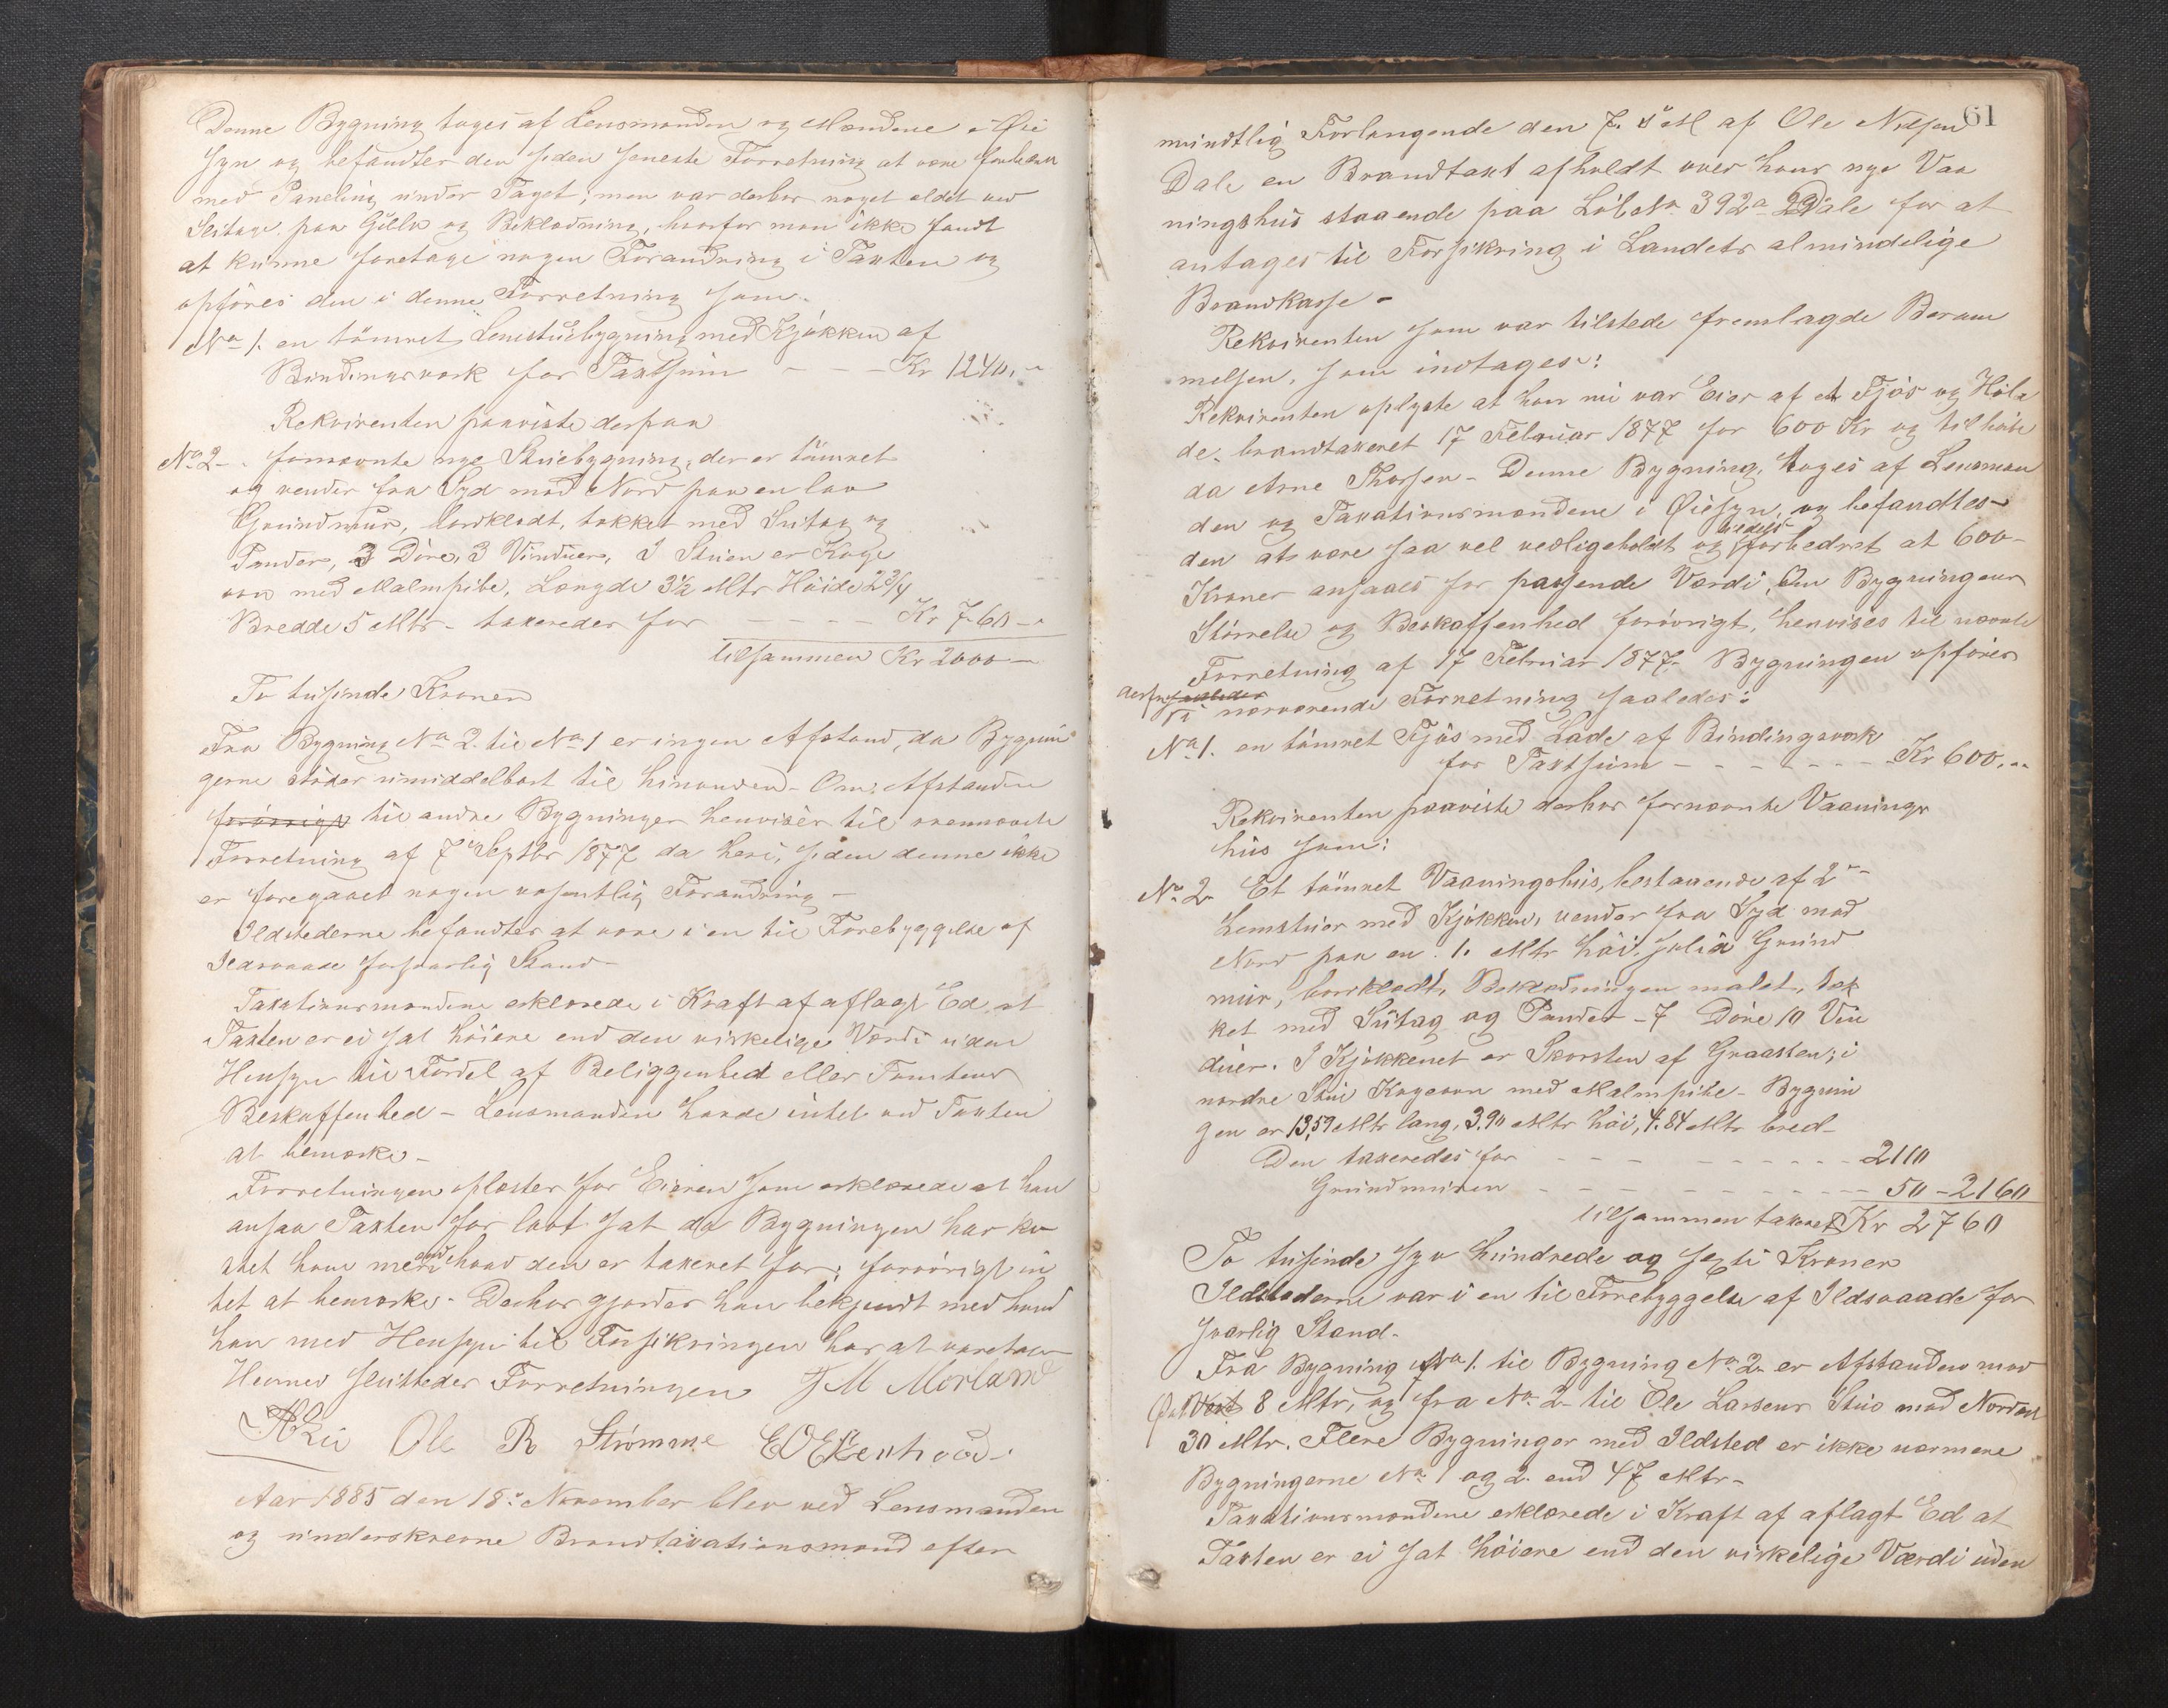 Denne Bygning toges af Lensmanden og Mændene i Øie
syn og befandtes den siden seneste Forretning at være forbedret
med Paneling under Taget; men var derhos noget ældet ved
Slitage paa Gulve og Beklædning, hvorfor man ikke fandt
at kunne foretage nogen Forandring i Taxten og
opføres den i denne Forretning som.
No 1. en tømret Lemstuebygning med Kjøkken af
Bindingsværk for Taxtsum - - - Kr 1240. -
Rekvirenten paaviste derpaa
No 2 - fornævnte nye Stuebygning, der er tømret
og vender fra Syd mod Nord paa en lav
Grundmur, bordklædt, tækket med Sutag og
Pander, 3 Døre, 3 Vinduer, I Stuen er Koge
ovn med Malmpibe, Længde 3½ Mtr Høide 2¾
Bredde 5 Mtr - taxeredes for - - - - Kr 760 - -
tilsammen Kr 2000 -
To tusinde Kroner
Fra Bygning No 2 til No 1 er ingen Afstand, da Bygnin
gerne støder umiddelbart til hinanden - Om Afstanden
forøvrigt til andre Bygninger henvises til ovennævnte
Forretning af 7 Septbr 1877 da heri, siden denne ikke
er foregaaet nogen væsentlig Forandring -
Ildstederne befandtes at være i en til Forebyggelse af
Ildsvaade forsvarlig Stand -
Taxationsmændene erklærede i Kraft af aflagt Ed, at
Taxten er ei sat høiere end den virkelige Værdi uden
Hensyn til Fordel af Beliggenhed eller Tomtens
Beskaffenhed - Lensmanden havde intet ved Taxten
at bemærke -
Forretningen oplæstes for Eieren som erklærede at han
ansaa Taxten for lavt sat da Bygningen har ko
stet ham mere end hvad den er taxeret for; forøvrigt in
tet at bemærke - Derhos gjordes han bekjendt med hvad
han med Hensyn til Forsikringen har at varetage
Hermed sluttedes Forretningen J M Morland
Ole R Strømme
Aar 1885 den 18de November blev ved Lensmanden
og underskrevne Brandtaxationsmænd efter
61
mundtlig Forlangende den 7. ds. af Ole Nilsen
Dale en Brandtaxt afholdt over hans nye Vaa
ningshus staaende paa Løbeno 392a Dale for at
antages til Forsikring i Landets almindelige
Brandkasse -
Rekvirenten som var tilstede fremlagde Beram
melsen, som indtages:
Rekvirenten oplyste at han nu var Eier af et Fjøs og Høla
de, brandtaxeret 17 Februar 1877 for 600 Kr og tilhørte
da Arne Thorsen - Denne Bygning toges af Lensman
den og Taxationsmændene i Øiesyn, og befandtes
den at være saa vel vedligeholdt og tildels forbedret at 600 -
Kroner ansaaes for passende Værdi, Om Bygningens
Størrelse og Beskaffenhed forøvrigt, henvises til nævnte
Forretning af 17 Februar 1877 - Bygningen opføres
i nærværende Forretning saaledes:
No 1. en tømret Fjøs med Lade af Bindingsværk
for Taxtsum - - - - - - - Kr 600. -
Rekvirenten paaviste derhos fornævnte Vaanings
hus som:
No 2 Et tømret Vaaningshus, bestaaende af 2
Lemstuer med Kjøkken, vender fra Syd mod
Nord paa en 1. Mtr høi, solid Grund
mur, bordklædt, Beklædningen malet, tæk
ket med Sutag og Pander - 7 Døre 10 Vin
duer. I Kjøkkenet er Skorsten af Graasten; i
nordre Stue Kogeovn med Malmpibe - Bygnin
gen er 13,59 Mtr lang, 3.90 Mtr høi, 4.84 Mtr bred -
Den taxeredes for - - - - - - - - 2110
Grundmuren - - - - - - - - 50 - 2160
tilsammen taxeret Kr 2760
To tusinde syv hundrede og sexti Kroner
Ildstederne var i en til Forebyggelse af Ildsvaade for
svarlig Stand -
Fra Bygning No 1. til Bygning No 2 er Afstanden mod
Øst Vest 8 Mtr, og fra No 2 til Ole Larsens Stue mod Nordost
30 Mtr. Flere Bygninger med Ildsted er ikke nærmere
Bygningerne No 1 og 2 end 47 Mtr -
Taxationsmændene erklærede i Kraft af aflagt Ed at
Taxten er ei sat høiere end den virkelige Værdi uden